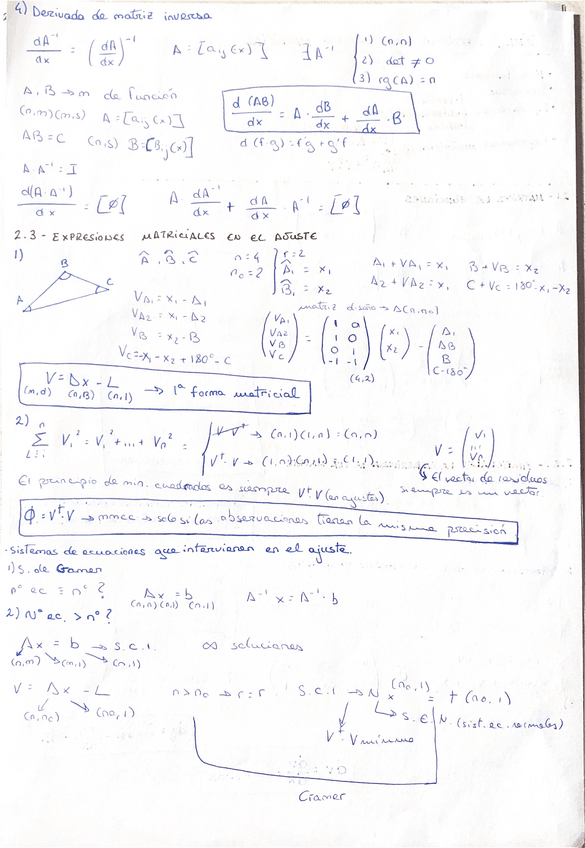 4) Derivada de matriz inversa
dA⁻¹/dx = (dA/dx)⁻¹   A = [aij(x)]   ∃A⁻¹ { 1) (n,n)
2) det ≠ 0
3) rg(A) = n
A, B → m de función
(n,m)(m,s)   A = [aij(x)]
AB = C   (n,s)   B = [Bij(x)]
d(AB)/dx = A · dB/dx + dA/dx · B
d(f·g) = f'g + g'f
A·A⁻¹ = I
d(A·A⁻¹)/dx = [∅]   A · dA⁻¹/dx + dA/dx · A⁻¹ = [∅]
2.3 - EXPRESIONES MATRICIALES EN EL AJUSTE
1)
A B C
Â, B̂, Ĉ   n = 4   r = 2
n₀ = 2   Â₁ = x₁
B̂₁ = x₂
A₁ + VA₁ = x₁   B + VB = x₂
A₂ + VA₂ = x₁   C + Vc = 180 - x₁ - x₂
VA₁ = x₁ - A₁
VA₂ = x₁ - A₂
VB = x₂ - B
Vc = -x₁ - x₂ + 180° - C
matriz diseño → A(n,n₀)
(VA₁ VA₂ VB Vc) = (1 0; 1 0; 0 1; -1 -1) (x₁ x₂) - (A₁ AB B C-180°)
(4,2)
V = Ax - L → 1ª forma matricial
(n,1)
2)
Σ Vi² = V₁² + ... + Vn² = { V·Vᵗ → (n,1)(1,n) = (n,n)
Vᵗ·V → (1,n)(n,1) = (1,1)
V = (V₁ ... Vn)
El vector de residuos
siempre es un vector
El principio de min. cuadrados es siempre Vᵗ V (en ajustes)
Φ = Vᵗ·V → mmcc → solo si las observaciones tienen la misma precisión
· Sistemas de ecuaciones que intervienen en el ajuste.
1) S. de Cramer
nº ec = nº ?   Ax = b   A⁻¹ x = A⁻¹ · b
(n,n)(n,1) (n,1)
2) Nº ec. > nº ?
Ax = b → S.C.I.   ∞ soluciones
(n,m) (m,1) (n,1)
V = Ax - L   n > n₀ → r = r   S.C.I → N x (n₀,1) = t (n₀,1)
(n,n₀) (n₀,1)
S. E. N. (sist. ec. normales)
Vᵗ·V mínimo
Cramer